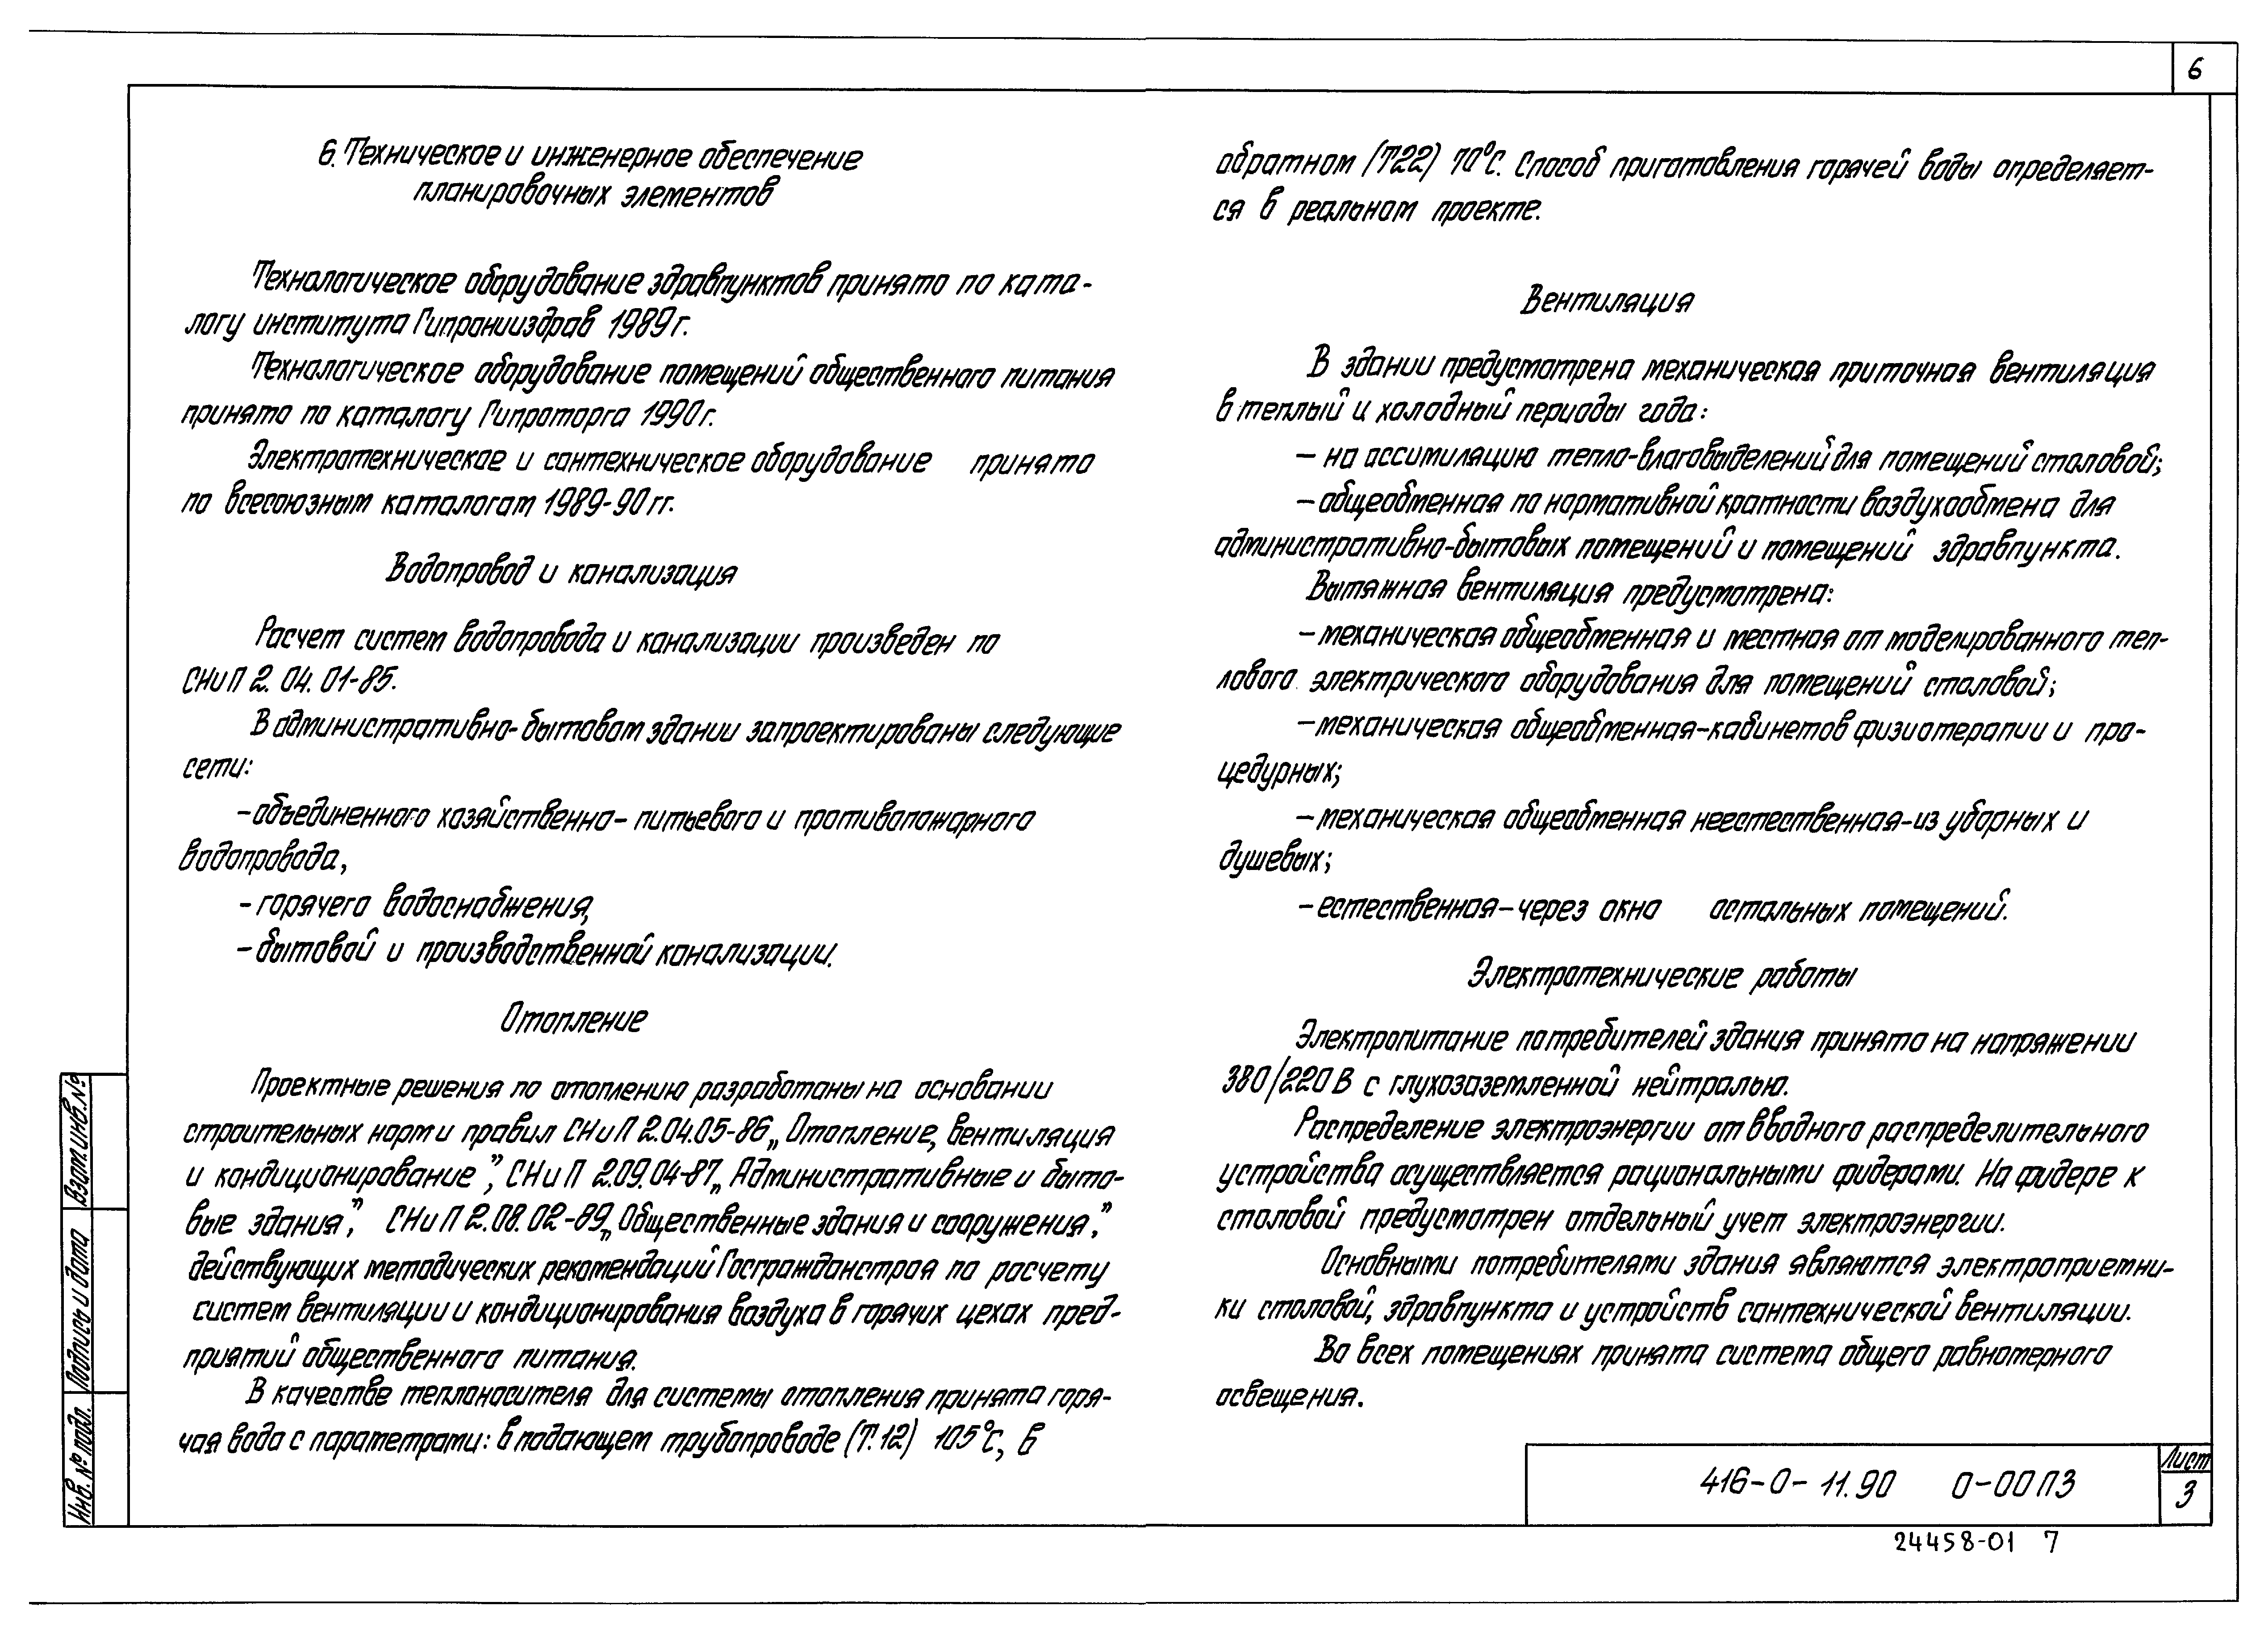 6
6. Техническое и инженерное обеспечение
планировочных элементов
Технологическое оборудование здравпунктов принято по ката-
логу института Гипронииздрав 1989 г.
Технологическое оборудование помещений общественного питания
принято по каталогу Гипроторга 1990 г.
Электротехническое и сантехническое оборудование принято
по всесоюзным каталогам 1989-90 гг.
Водопровод и канализация
Расчет систем водопровода и канализации произведен по
СНиП 2.04.01-85.
В административно-бытовом здании запроектированы следующие
сети:
- объединенного хозяйственно-питьевого и противопожарного
водопровода,
- горячего водоснабжения,
- бытовой и производственной канализации.
Отопление
Проектные решения по отоплению разработаны на основании
строительных норм и правил СНиП 2.04.05-86 „Отопление, вентиляция
и кондиционирование”, СНиП 2.09.04-87 „Административные и быто-
вые здания”, СНиП 2.08.02-89 „Общественные здания и сооружения”,
действующих методических рекомендаций Госгражданстроя по расчету
систем вентиляции и кондиционирования воздуха в горячих цехах пред-
приятий общественного питания.
В качестве теплоносителя для системы отопления принята горя-
чая вода с параметрами: в подающем трубопроводе (Т.12) 105°С, в
обратном (Т22) 70°С. Способ приготовления горячей воды определяет-
ся в реальном проекте.
Вентиляция
В здании предусмотрена механическая приточная вентиляция
в теплый и холодный периоды года:
- на ассимиляцию тепло-влаговыделений для помещений столовой;
- общеобменная по нормативной кратности воздухообмена для
административно-бытовых помещений и помещений здравпункта.
Вытяжная вентиляция предусмотрена:
- механическая общеобменная и местная от моделированного теп-
лового электрического оборудования для помещений столовой;
- механическая общеобменная-кабинетов физиотерапии и про-
цедурных;
- механическая общеобменная неестественная-из уборных и
душевых;
- естественная-через окна остальных помещений.
Электротехнические работы
Электропитание потребителей здания принято на напряжении
380/220 В с глухозаземленной нейтралью.
Распределение электроэнергии от вводного распределительного
устройства осуществляется рациональными фидерами. На фидере к
столовой предусмотрен отдельный учет электроэнергии.
Основными потребителями здания являются электроприемни-
ки столовой, здравпункта и устройств сантехнической вентиляции.
Во всех помещениях принята система общего равномерного
освещения.
Взам. инв. №
Подпись и дата
Инв. № подл.
416-0-11.90 0-00 ПЗ
Лист
3
24458-01 7